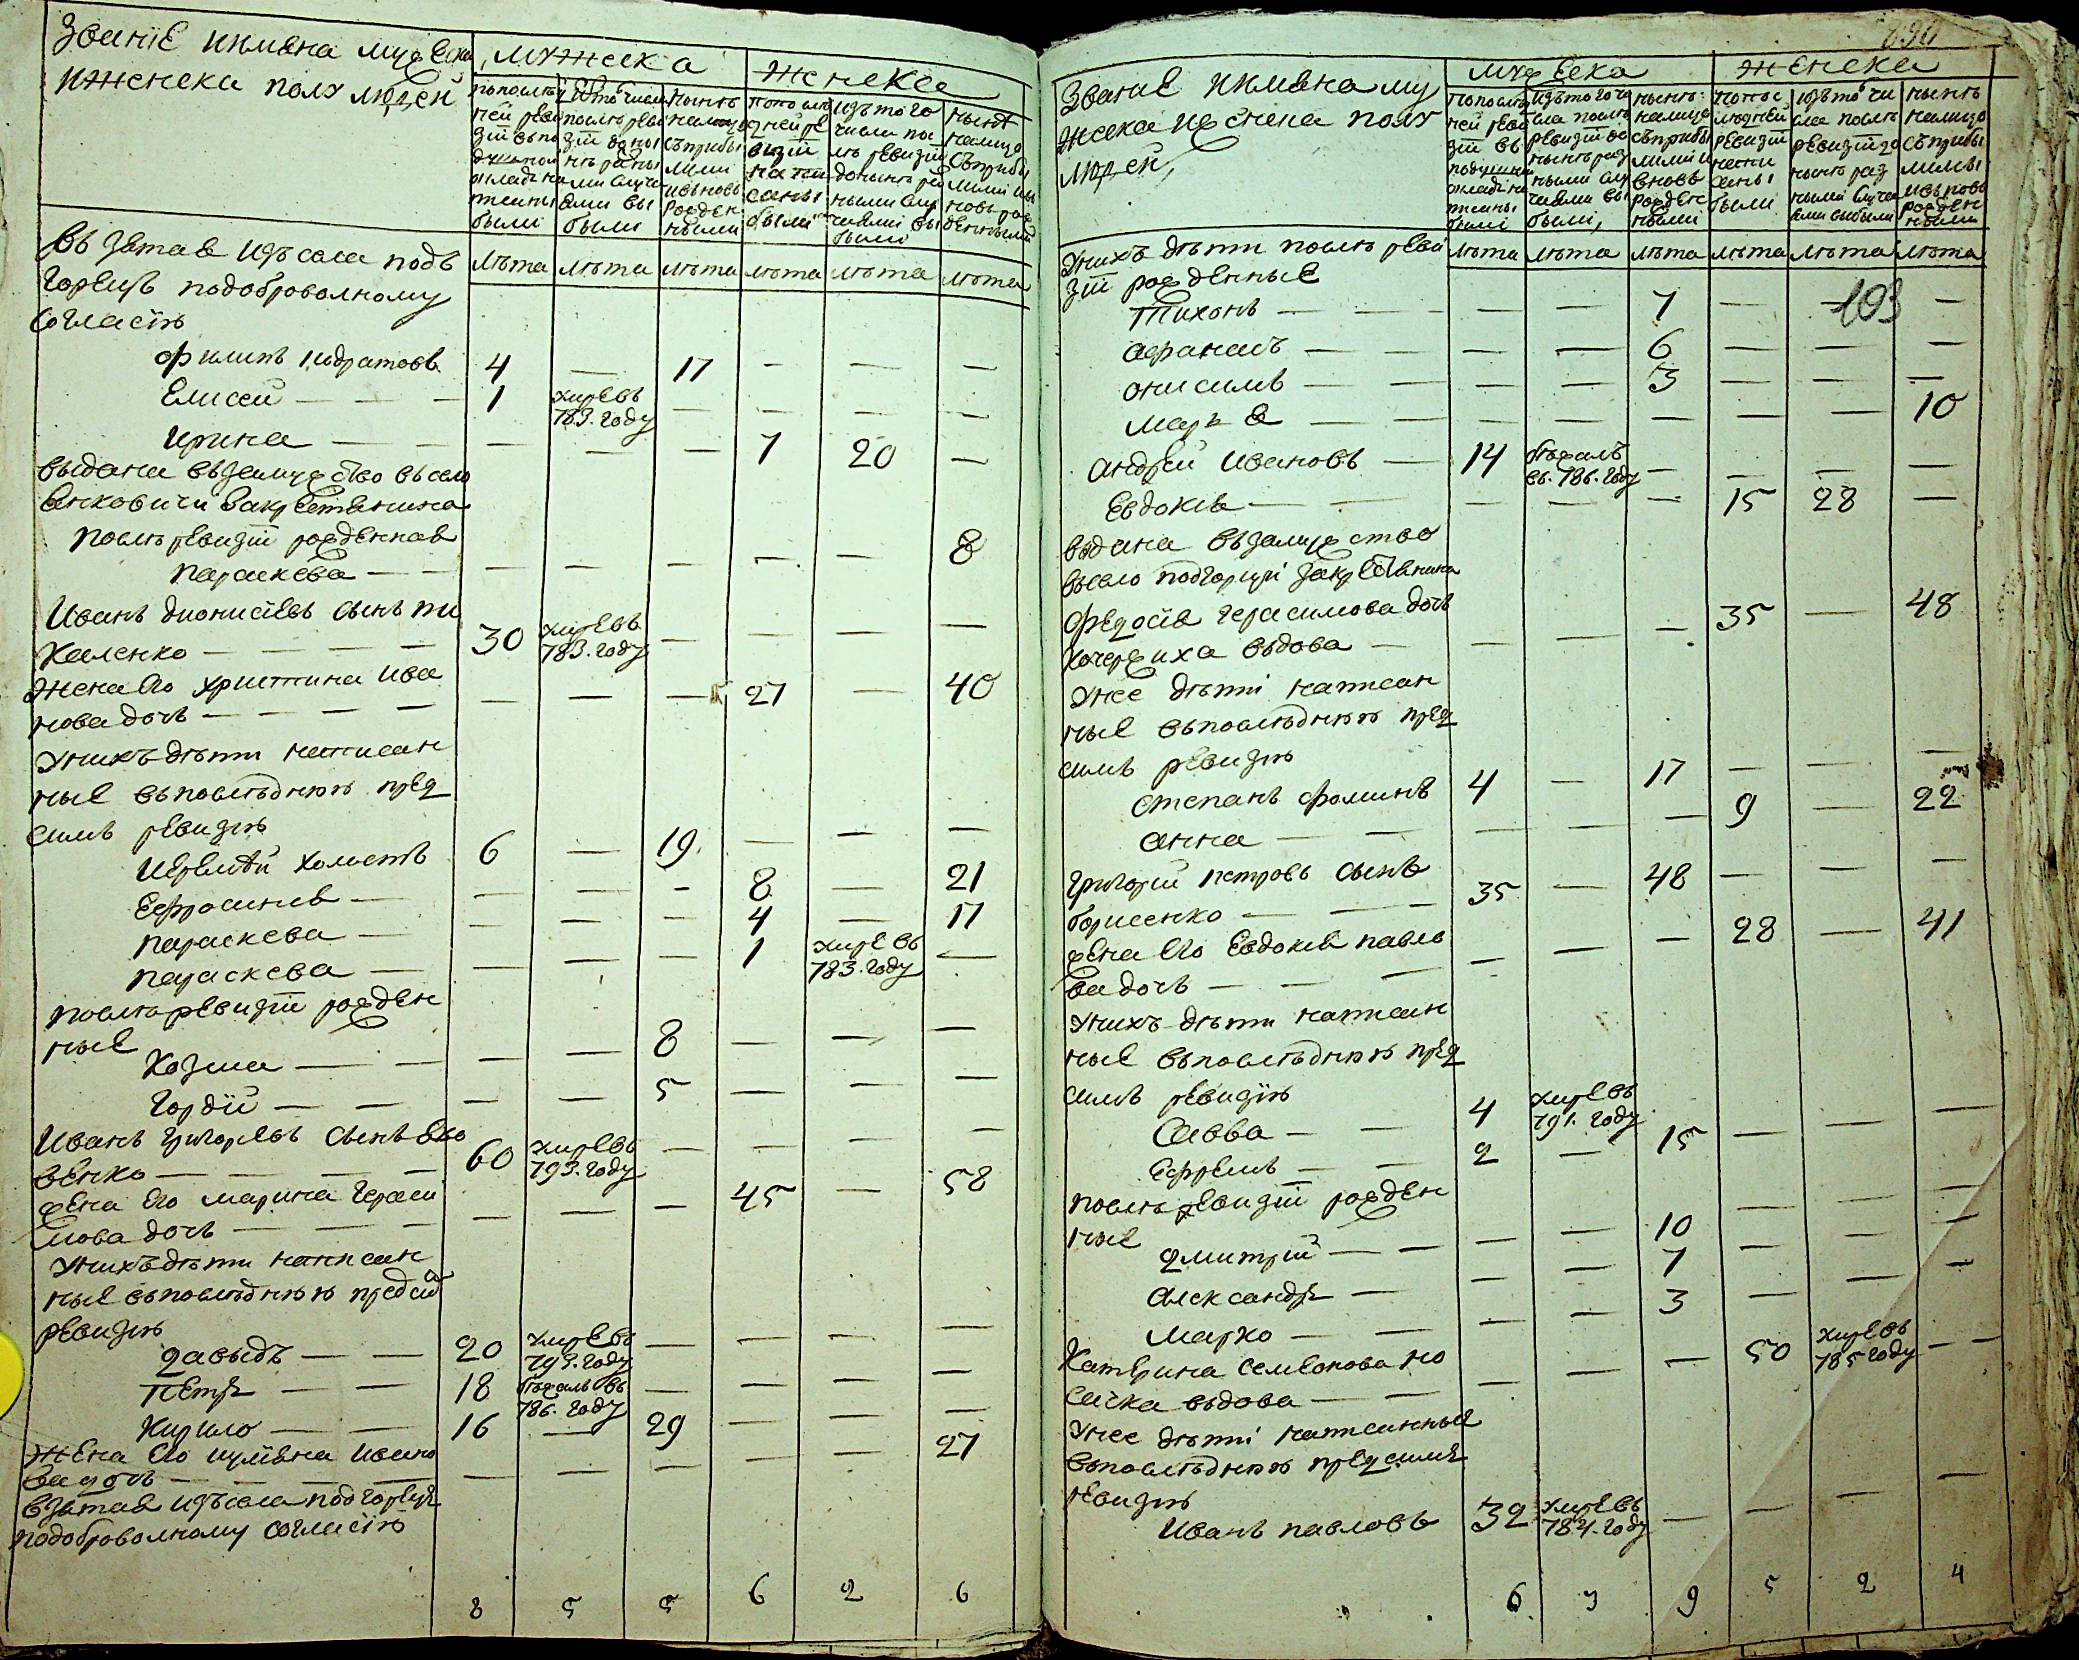 Званіе и имяна мужеска
и женска полу людей
мужеска
женска
по последней ревизіи въ подушной окладъ написаны были
изъ того числа после ревизіи до ныне разными случаями выбыли
ныне на лицо съ прибылыми и вновь рожденными
по последней ревизіи написаны были
изъ того числа после ревизіи до ныне разными случаями выбыли
ныне на лицо съ прибылыми и вновь рожденными
лѣта лѣта лѣта лѣта лѣта лѣта
взятая изъ села подъ
горецъ по доброволному
согласію
Филипъ 4 — 17 — — —
Елисей — — — 1 умре въ 783. году — — — —
Ирина — — — — — — 7 20 —
выдана въ замужство въ село
Янковичи за крестянина
после ревизіи рожденная
Параскева — — — — — — — 8
Иванъ Дионисіевъ сынъ Ми
халенко — — — — 30 умре въ 783. году — — — —
жена его Христина Ива
нова дочь — — — — — — — 27 — 40
у нихъ дѣти написан
ные в последнюю пред
симъ ревизію
Иеремѣй холостъ 6 — 19 — — —
Ефросинія — — — — 8 — 21
Параскева — — — — 4 — 17
Параскева — — — — 1 умре въ 783. году —
после ревизіи рожден
ные
Козма — — — — 8 — — —
Гордій — — — — — 5 — — —
Иванъ Григорьевъ сынъ
венко — — — — 60 умре въ 793. году — — — —
жена его Марина Гераси
мова дочь — — — — — — 45 — 58
у нихъ дѣти написан
ные в последнюю предсим
ревизію
Давыдъ — — 20 умре въ 793. году — — — —
Петръ — — 18 бѣжалъ въ 786. году — — — —
Кирило — — 16 — 29 — — —
жена его Улияна Ивано
ва дочь — — — — — — — — 27
взятая изъ села подгорецъ
по доброволному согласію
8 5 5 6 2 6
890
Званіе и имяна му
жеска и женска полу
людей
мужеска
женска
по последней ревизіи въ подушной окладъ написаны были
изъ того числа после ревизіи до ныне разными случаями выбыли
ныне на лицо съ прибылыми и вновь рожденными
по последней ревизіи написаны были
изъ того числа после ревизіи до ныне разными случаями выбыли
ныне на лицо съ прибылыми и вновь рожденными
лѣта лѣта лѣта лѣта лѣта лѣта
у нихъ дѣти после реви
зіи рожденные
103
Тихонъ — — — — — 7 — — —
Афанасъ — — — — 6 — — —
Онисимъ — — — — 3 — — —
Марѳа — — — — — — — 10
Андрей Ивановъ — 14 бѣжалъ въ. 786. году — — — —
Евдокія — — — — — 15 28 —
выдана въ замужство
въ село подгорци за крестянина
Федосія Герасимова дочь 35 — 48
вдова — — — —
у нее дѣти написан
ные в последнюю пред
симъ ревизію
Степанъ Фоминъ 4 — 17 — — —
Анна — — — — — 9 — 22
Григорій Петровъ сынъ
Борисенко — — — 35 — 48 — — —
жена его Евдокія Павло
ва дочь — — — — — — 28 — 41
у нихъ дѣти написан
ные в последнюю пред
симъ ревизію
Савва — — 4 умре въ 791. году
Ефремъ — — 2 — 15 — — —
после ревизіи рожден
ные
Дмитрій — — — — 10 — — —
Александръ — — — 7 — — —
Марко — — — — 3 — — —
Катерина Семіонова Но
сачка вдова — — — — — 50 умре въ 785 году —
у нее дѣти написанные
в последнюю предсимъ
ревизію
Иванъ Павловъ 32 умре въ 784. году — — — —
6 3 9 5 2 4